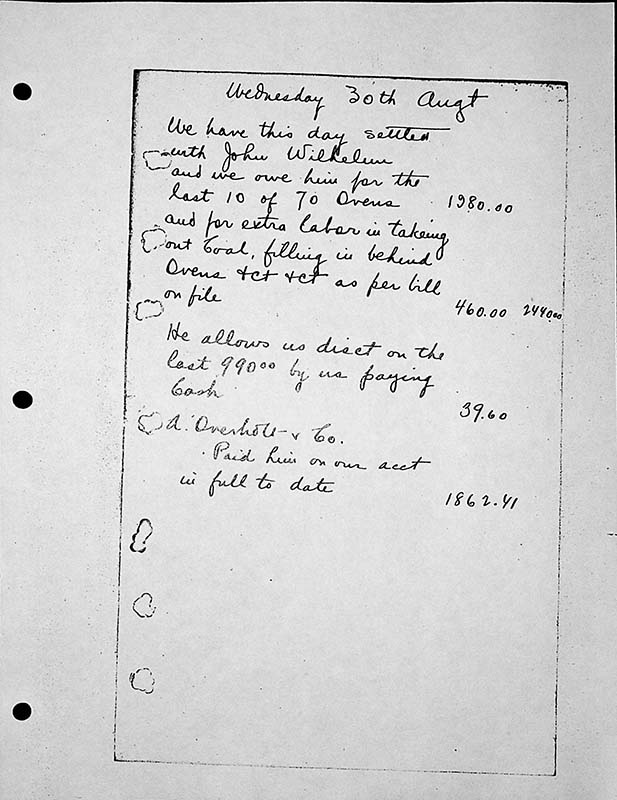 Wednesday 30th Augt
We have this day settled
with John Wilhelm
and we owe him for the
last 10 of 70 Ovens 1980.00
and for extra labor in takeing
out Coal, filling in behind
Ovens &ct &ct as per bill
on file 460.00 2440.00
He allows us disct on the
last 990.00 by us paying
Cash 39.60
A. Overholt & Co.
Paid him on our acct
in full to date 1862.41